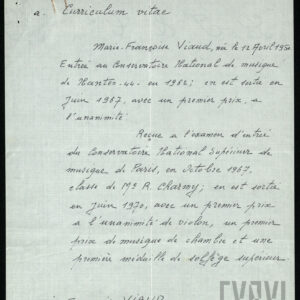 a. Curriculum vitae
Marie-Françoise Viaud, né le 12 Avril 195
Entrée au Conservatoire National de musique
de Nantes-44- en 1962; en est sortie en
Juin 1967, avec un premier prix, a
l'unanimité
Reçue a l'examen d'entrée
du Conservatoire National Supérieur de
musique de Paris, en Octobre 1967.
classe de Mr R. Charmy; en est sortie
en Juin 1970, avec un premier prix
a l'unanimité de violon, un premier
prix de musique de chambre et une
première médaille de solfège supérieur
VIAUD